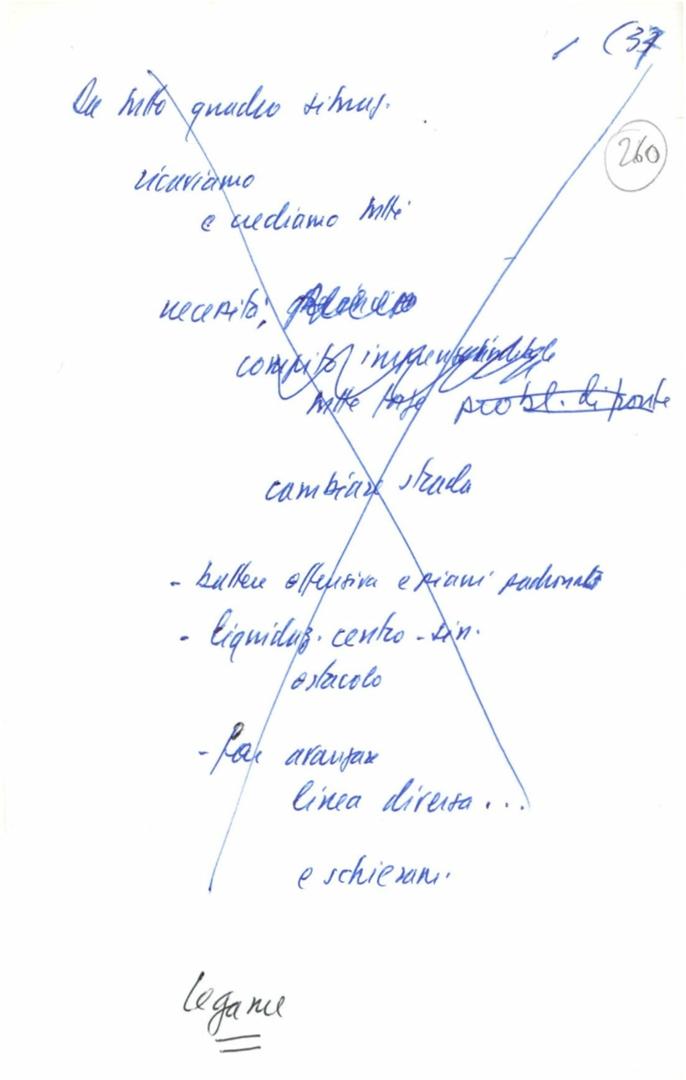 (37
260
Da tutto quadro situaz.
ricaviamo
e vediamo tutti
necessità,
compito
tutte forze probl. di fronte
cambiare strada
- battere offensiva e piani padronali
- liquidaz. centro-sin.
ostacolo
- far avanzare
linea diversa...
e schieram.
legame